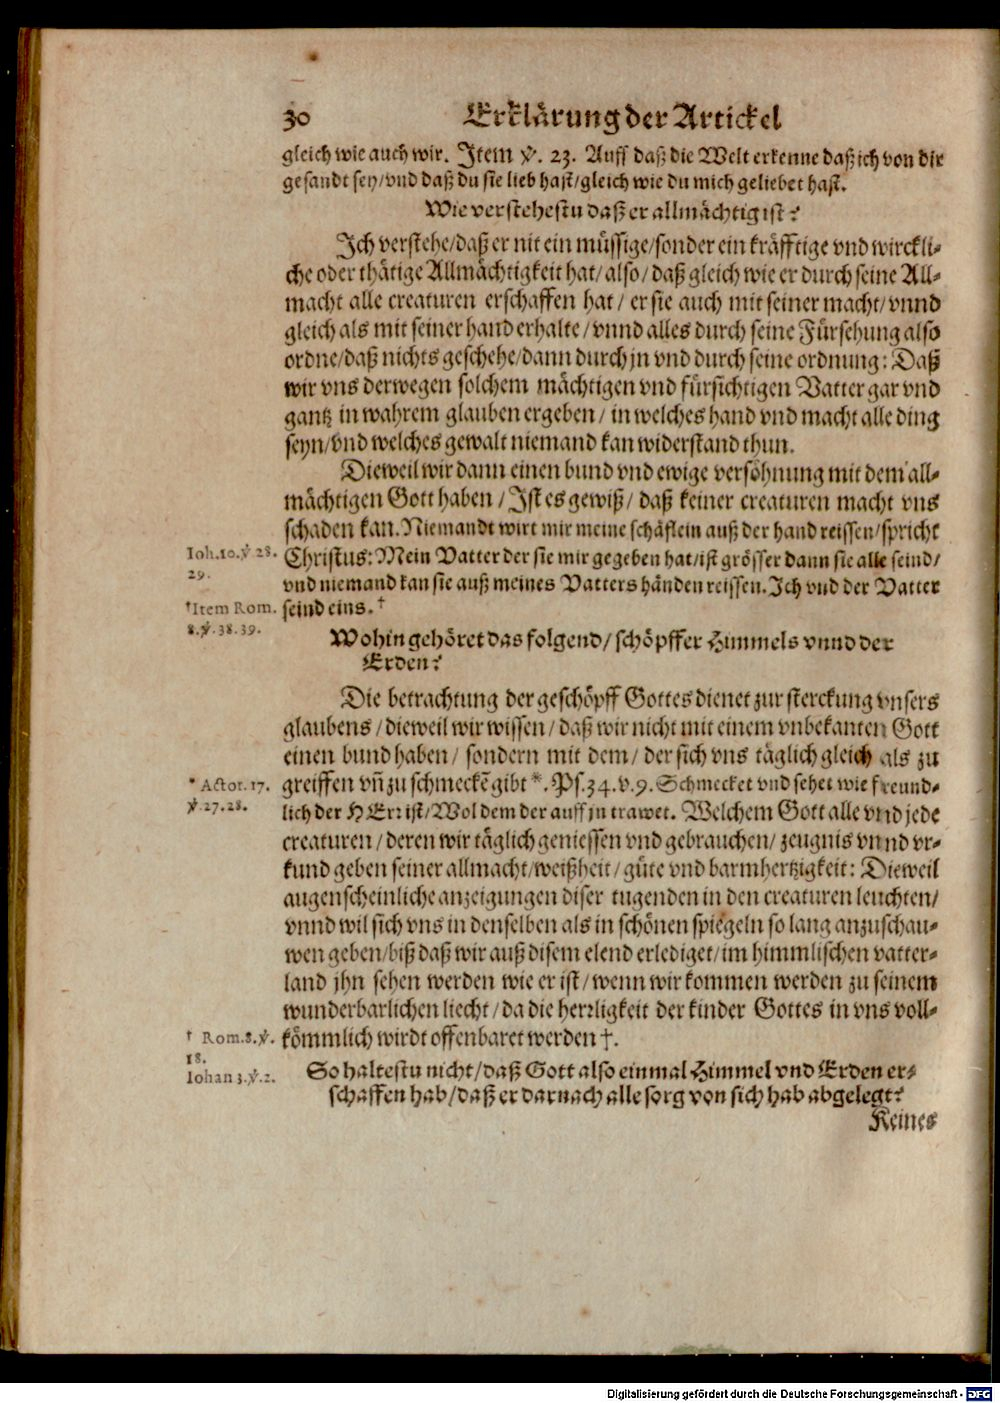 30 Erklärung der Artickel
gleich wie auch wir. Item ℣. 23. Auff daß die Welt erkenne daß ich von dir
gesandt sey/vnd daß du sie lieb hast/gleich wie du mich geliebet hast.
Wie verstehestu daß er allmächtig ist?
Ich verstehe/daß er nit ein müssige/sonder ein kräfftige vnd wirckli-
che oder thätige Allmächtigkeit hat/also/daß gleich wie er durch seine All-
macht alle creaturen erschaffen hat/ er sie auch mit seiner macht/vnnd
gleich als mit seiner hand erhalte/vnnd alles durch seine Fürsehung also
ordne/daß nichts geschehe/dann durch jn vnd durch seine ordnung: Daß
wir vns derwegen solchem mächtigen vnd fürsichtigen Vatter gar vnd
gantz in wahrem glauben ergeben/ in welches hand vnd macht alle ding
seyn/vnd welches gewalt niemand kan widerstand thun.
Dieweil wir dann einen bund vnd ewige versöhnung mit dem all-
mächtigen Gott haben/ Ist es gewiß/ daß keiner creaturen macht vns
schaden kan. Niemandt wirt mir meine schäflein auß der hand reissen/spricht
Ioh. 10. ℣ 28. Christus: Mein Vatter der sie mir gegeben hat/ist grösser dann sie alle seind/
29. vnd niemand kan sie auß meines Vatters händen reissen. Ich vnd der Vatter
†Item Rom. seind eins. †
8. ℣. 38. 39.
Wohin gehöret das folgend/schöpffer Himmels vnnd der
Erden?
Die betrachtung der geschöpff Gottes dienet zur sterckung vnsers
glaubens/dieweil wir wissen/daß wir nicht mit einem vnbekanten Gott
einen bund haben/ sondern mit dem/ der sich vns täglich gleich als zu
* Actor. 17. greiffen vñ zu schmeckẽ gibt *. Ps. 34. v. 9. Schmecket vnd sehet wie freund-
℣. 27. 28. lich der HErr ist/Wol dem der auff jn trawet. Welchem Gott alle vnd jede
creaturen/deren wir täglich geniessen vnd gebrauchen/ zeugnis vnnd vr-
kund geben seiner allmacht/weißheit/güte vnd barmhertzigkeit: Dieweil
augenscheinliche anzeigungen diser tugenden in den creaturen leuchten/
vnnd wil sich vns in denselben als in schönen spiegeln so lang anzuschau-
wen geben/biß daß wir auß disem elend erlediget/im himmlischen vatter-
land jhn sehen werden wie er ist/wenn wir kommen werden zu seinem
wunderbarlichen liecht/da die herrligkeit der kinder Gottes in vns voll-
† Rom. 8. ℣. kömmlich wirdt offenbaret werden †.
18.
Iohan 3. ℣. 2. So haltestu nicht/daß Gott also einmal Himmel vnd Erden er-
schaffen hab/daß er darnach alle sorg von sich hab abgelegt?
Keines
Digitalisierung gefördert durch die Deutsche Forschungsgemeinschaft - DFG